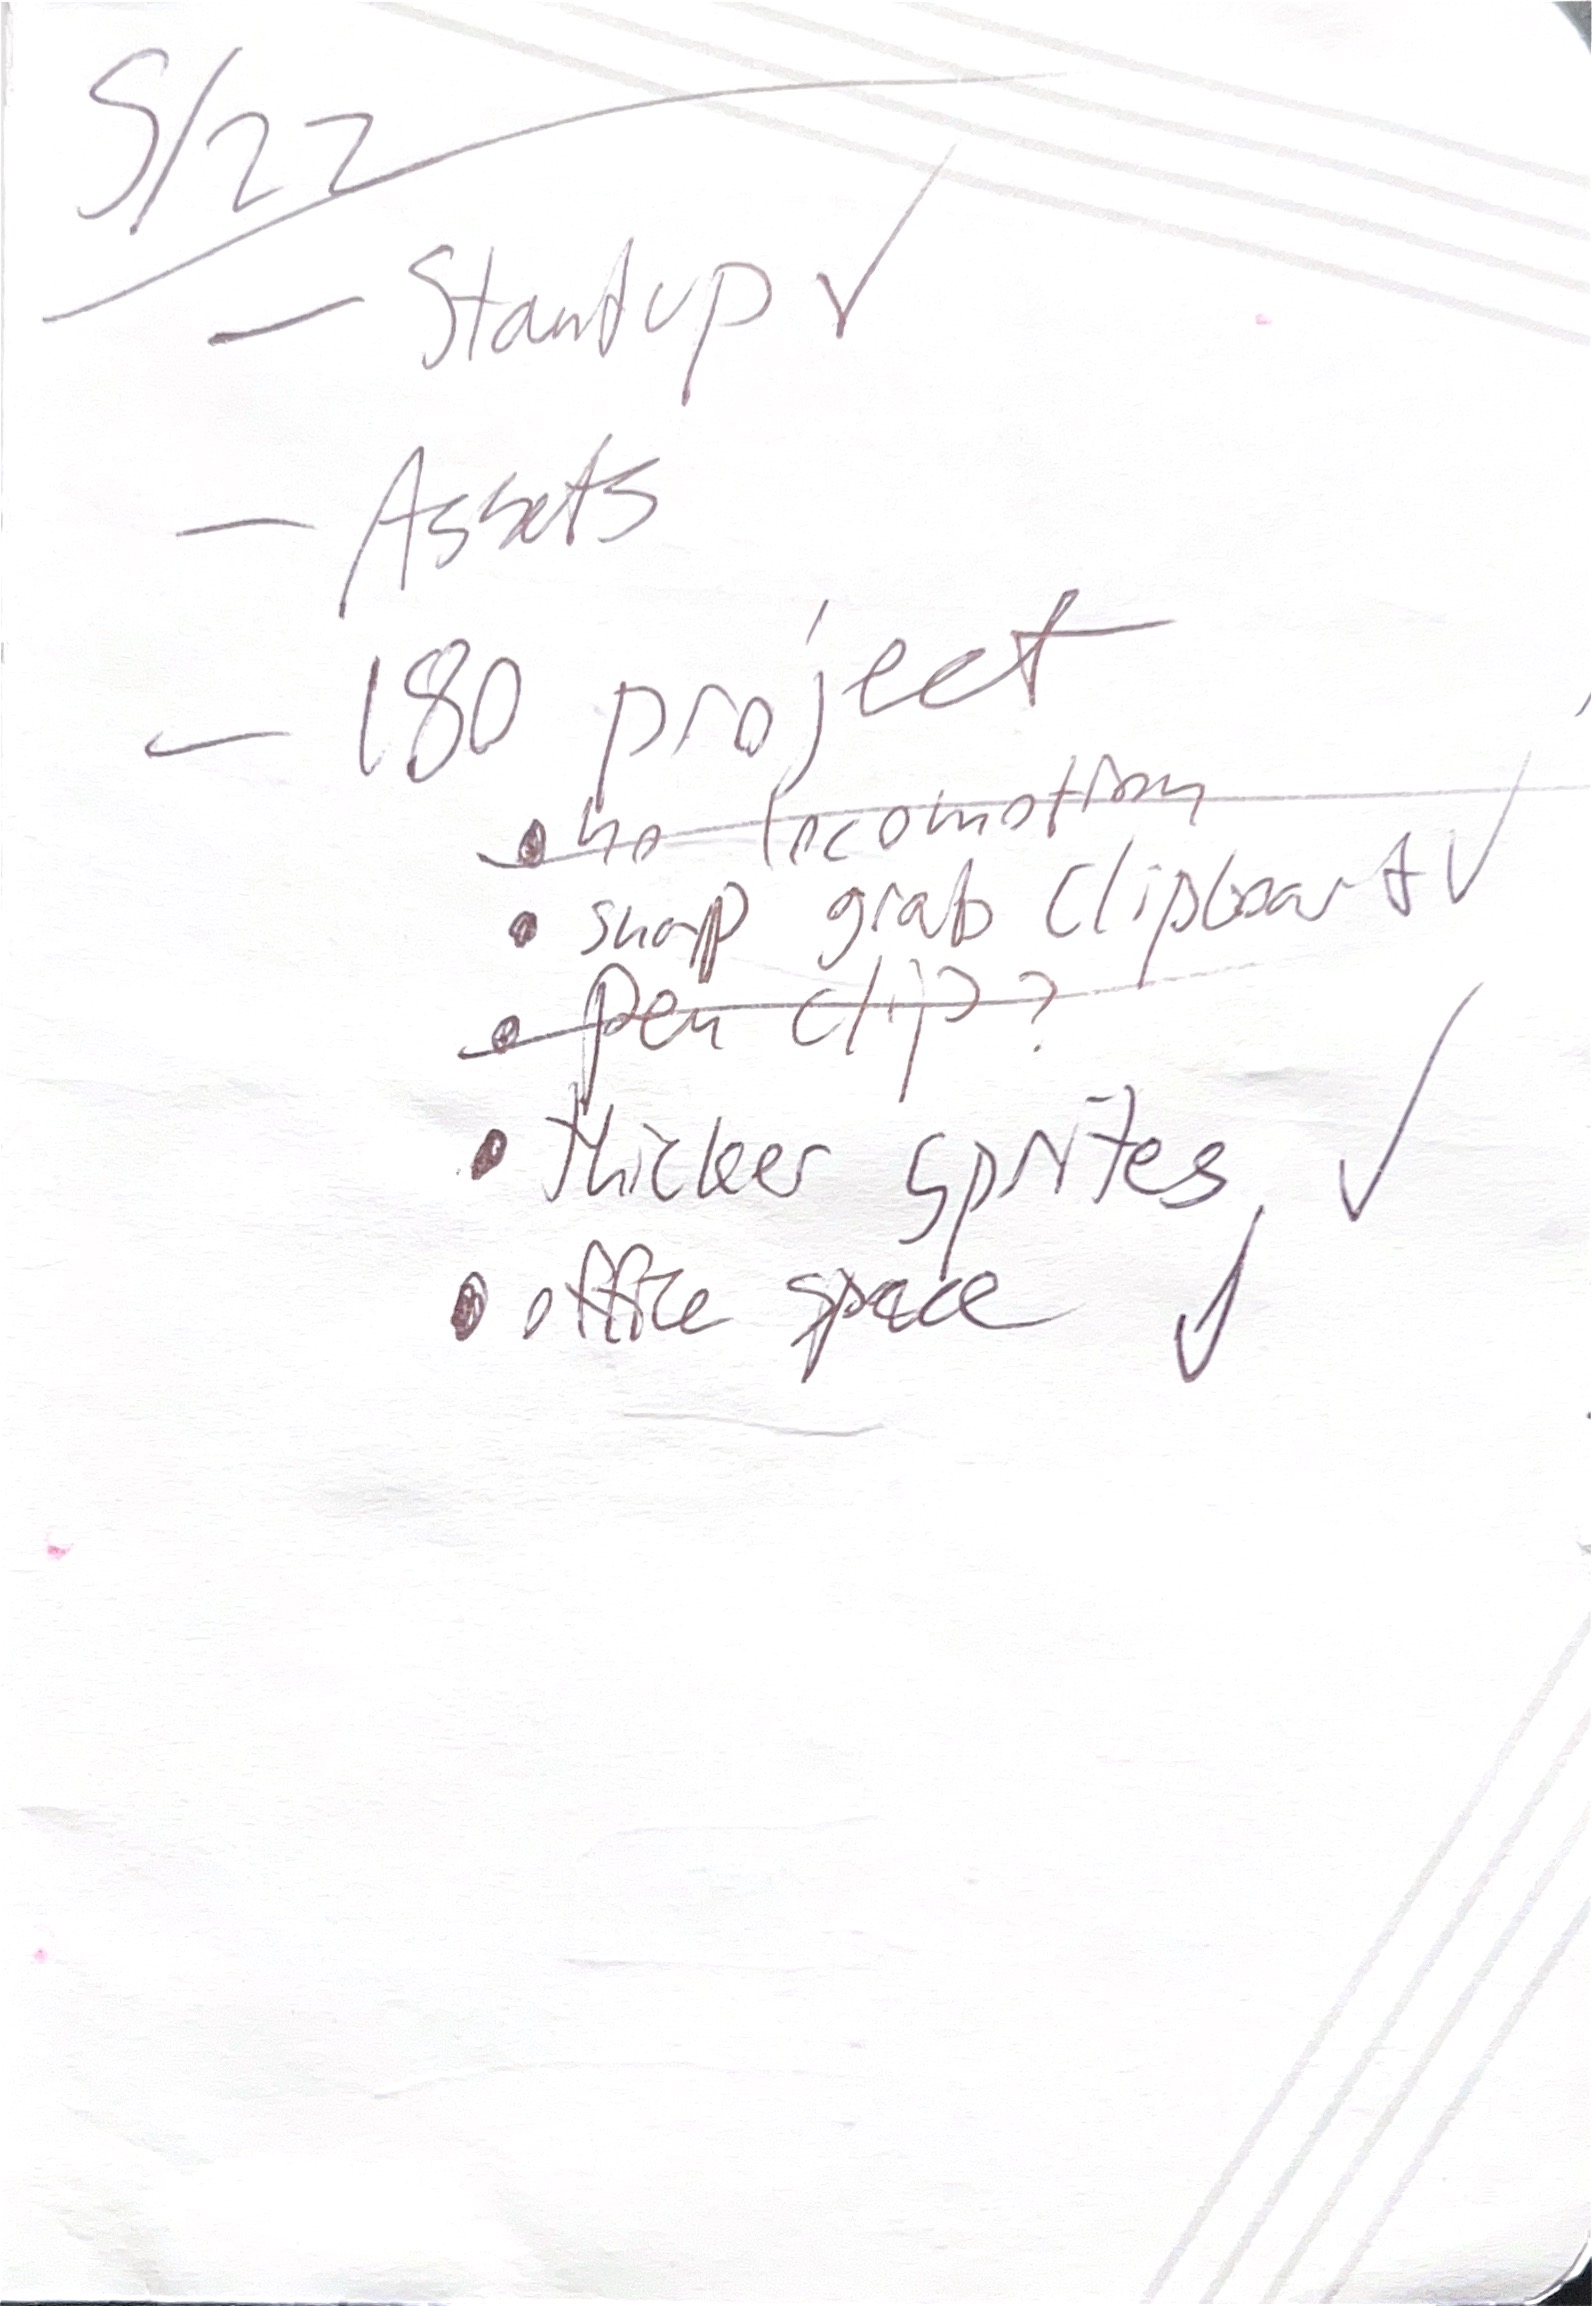 5/22
- Standup ✓
- Assets
- 180 project
• no locomotion
• snap grab clipboard ✓
• pen clip?
• thicker sprites ✓
• office space ✓